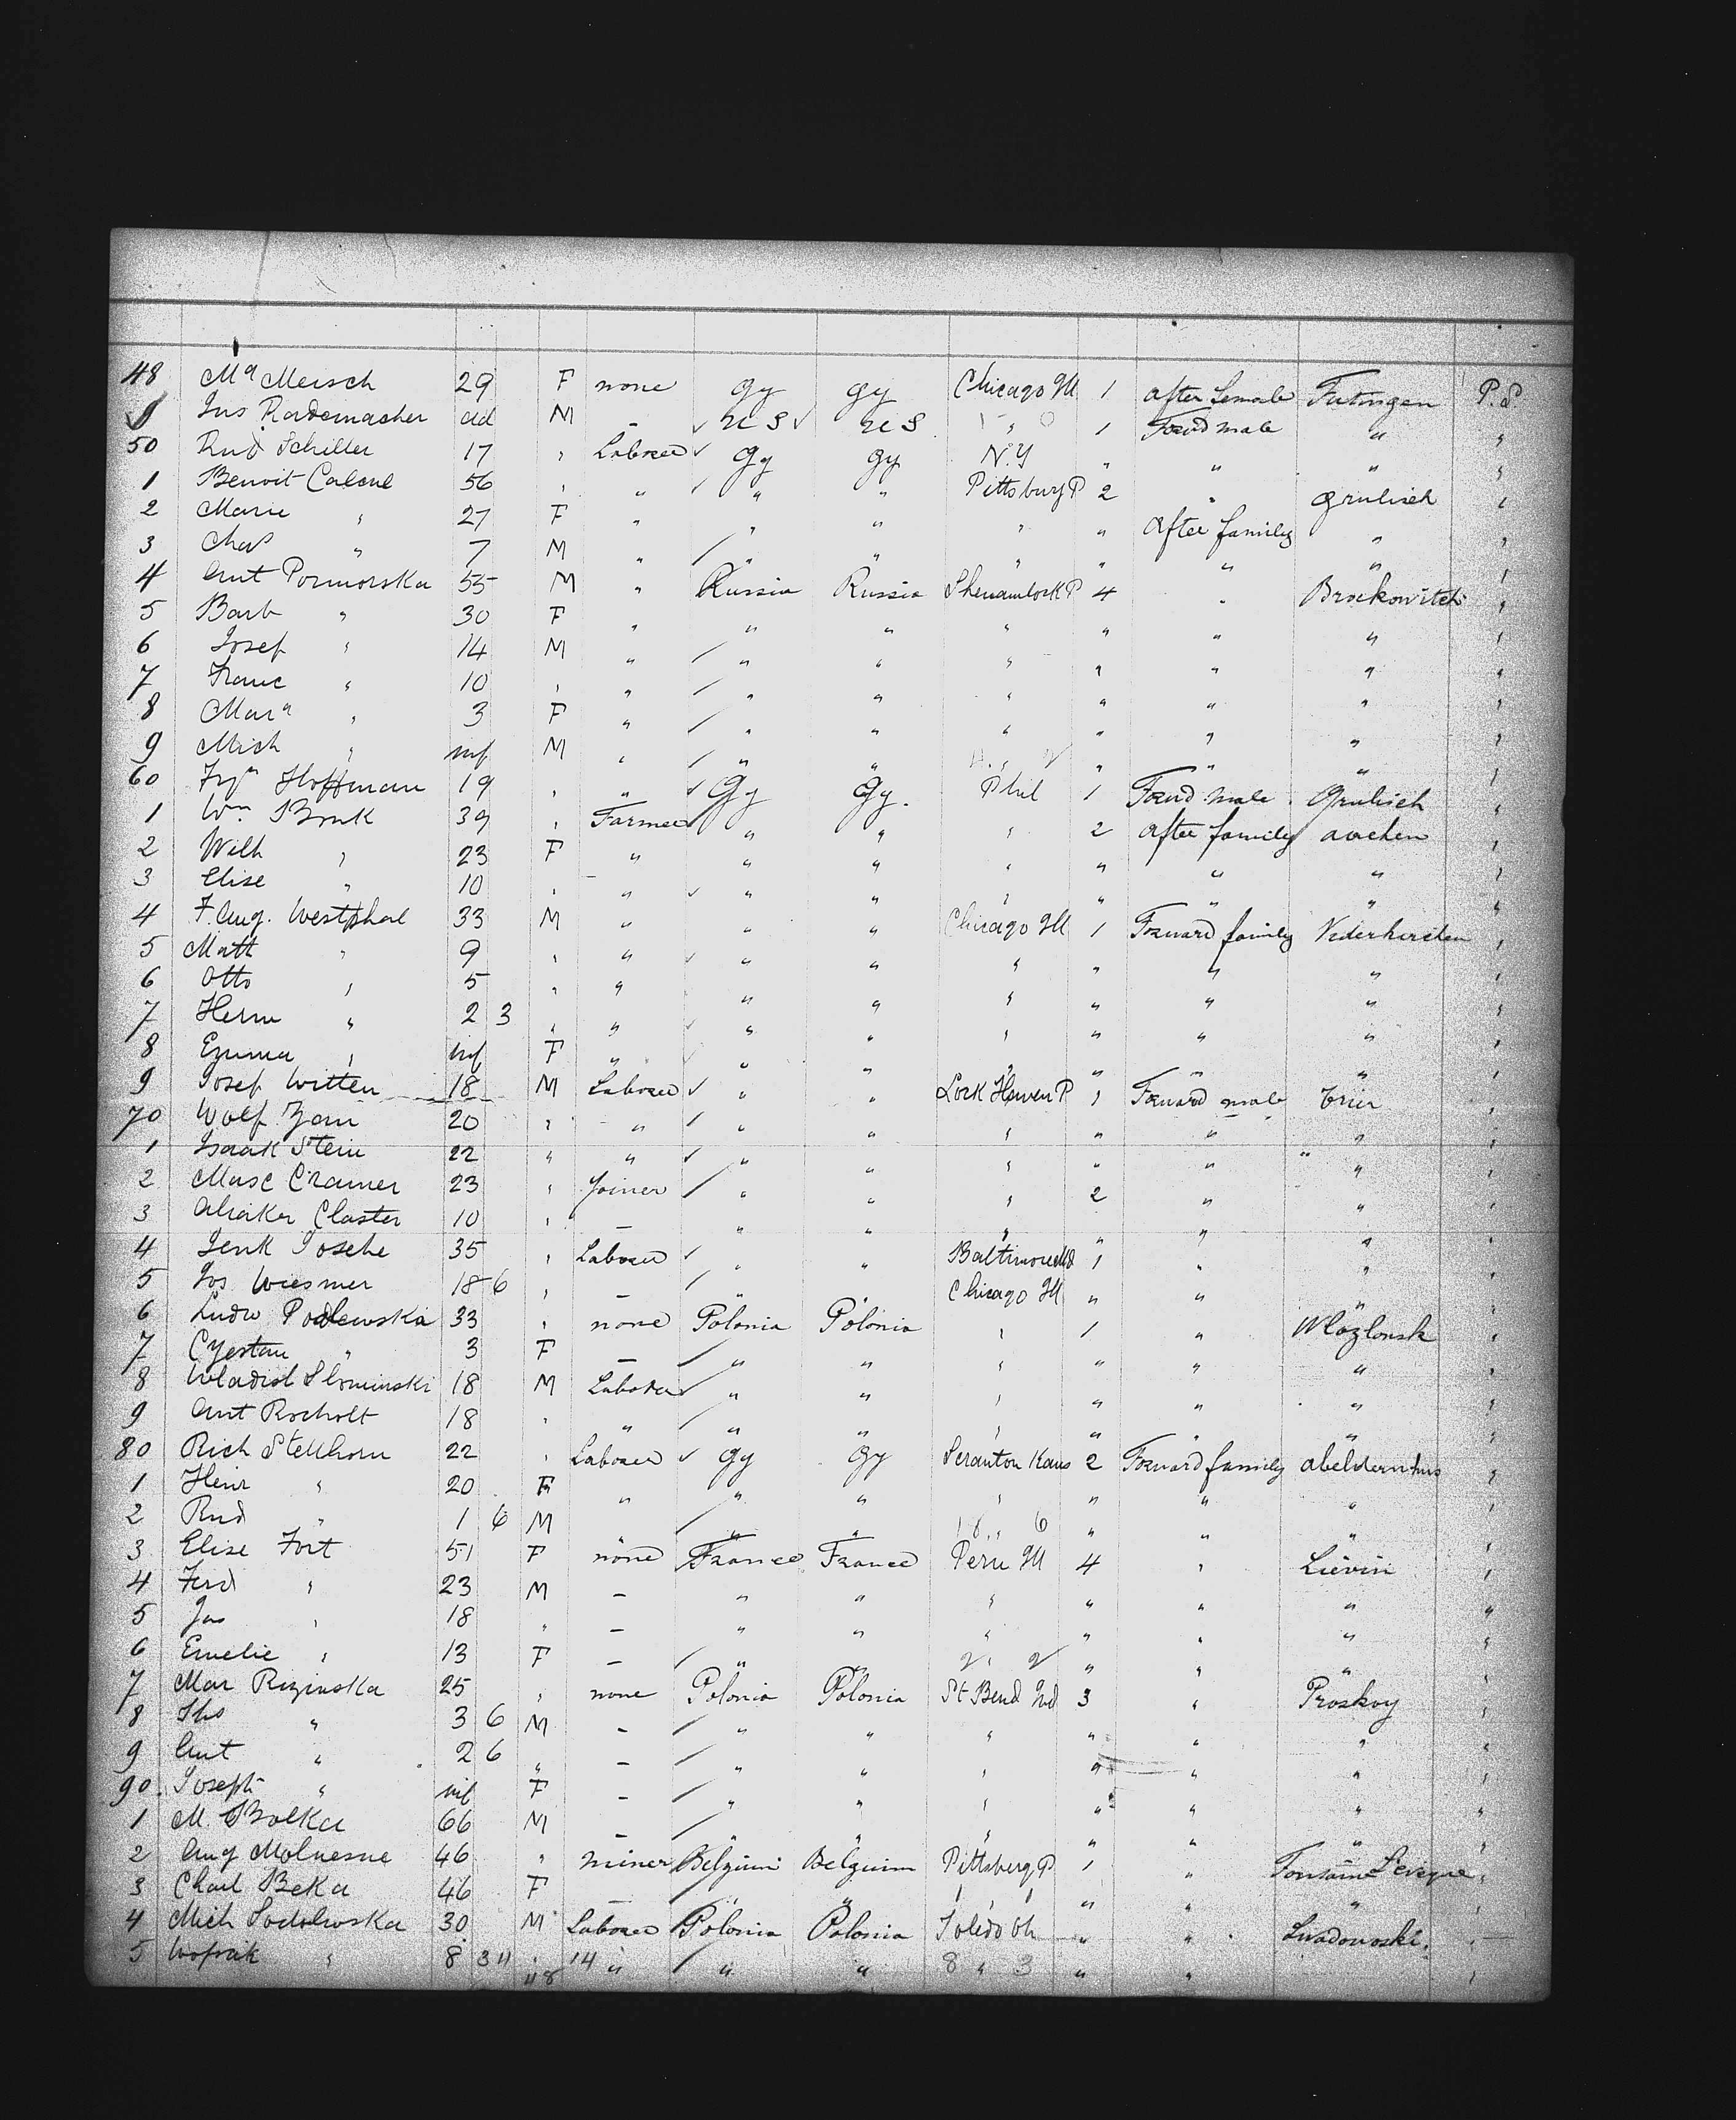 48 Ma Meisch 29 F none Gy Gy Chicago Ill 1 after female Tutingen P.P.
9 Jns Rademacher ad M – U S U S " 1 Forwd male "
50 Rud Schiller 17 " Laborer Gy Gy N.Y " " " "
1 Benoit Calcul 56 " " " " Pittsburg P 2 " Grulisch "
2 Marie " 27 F " " " " " after family " "
3 Chas " 7 M " " " " " " " "
4 Ant Pormorska 55 M " Russia Russia Shenamlock P 4 " Brockowitch "
5 Barb " 30 F " " " " " " " "
6 Josef " 14 M " " " " " " " "
7 Franc " 10 " " " " " " " " "
8 Mara " 3 F " " " " " " " "
9 Mich " inf M " " " " " " " "
60 Hoffman 19 " " Gy Gy. Phil 1 Forwd male Grulisch "
1 Wm Bruk 39 " Farmer " " " 2 after family aachen "
2 Wilh " 23 F " " " " " " " "
3 Elise " 10 " " " " " " " " "
4 F. Aug. Westphal 33 M " " " Chicago Ill 1 Forward family Niderkirchen "
5 Math " 9 " " " " " " " " "
6 Otto " 5 " " " " " " " " "
7 Herm " 2 3 " " " " " " " " "
8 Emma " inf F " " " " " " " "
9 Josef Witten 18 M Laborer " " Lock Hawen P 1 Forward male Trier "
70 Wolf Zorn 20 " " " " " " " " "
1 Isaak Stein 22 " " " " " " " " "
2 Masc Cramer 23 " Joiner " " " 2 " " "
3 Claster 10 " – " " " " " " "
4 Josche 35 " Laborer " " Baltimore Md 1 " " "
5 Jos Wiesmer 18 6 " – " " Chicago Ill " " " "
6 Ludw Podlewska 33 " none Polonia Polonia " 1 " Wlozlonsk "
7 " 3 F – " " " " " " "
8 Wladisl Slominski 18 M Laborer " " " " " " "
9 Ant Rocholt 18 " " " " " " " " "
80 Rich Stellhorn 22 " Laborer Gy Gy Scranton Kans 2 Forward family "
1 Heinr " 20 F " " " " " " " "
2 Rud " 1 6 M " " " 18 " 6 " " " "
3 Elise Fort 51 F none France France Peru Ill 4 " Liévin "
4 Ferd " 23 M – " " " " " " "
5 Jas " 18 " – " " " " " " "
6 Emelie " 13 F – " " " " " " "
7 Mar Rizinska 25 " none Polonia Polonia St Bend Ind 3 " Proskoy "
8 " 3 6 M – " " " " " " "
9 Ant " 2 6 " – " " " " " " "
90 Joseph " inf F – " " " " " " "
1 M. Bolka 66 M – " " " " " " "
2 Aug Molnesne 46 " miner Belgium Belgium Pittsberg P 1 " Fontaine Leveque "
3 Charl Beka 46 F – " " " " " " "
4 Mich Sodolwska 30 M Laborer Polonia Polonia Toledo Oh " " "
5 " 8 34 " 48 14 " " " 8 " 3 " " "